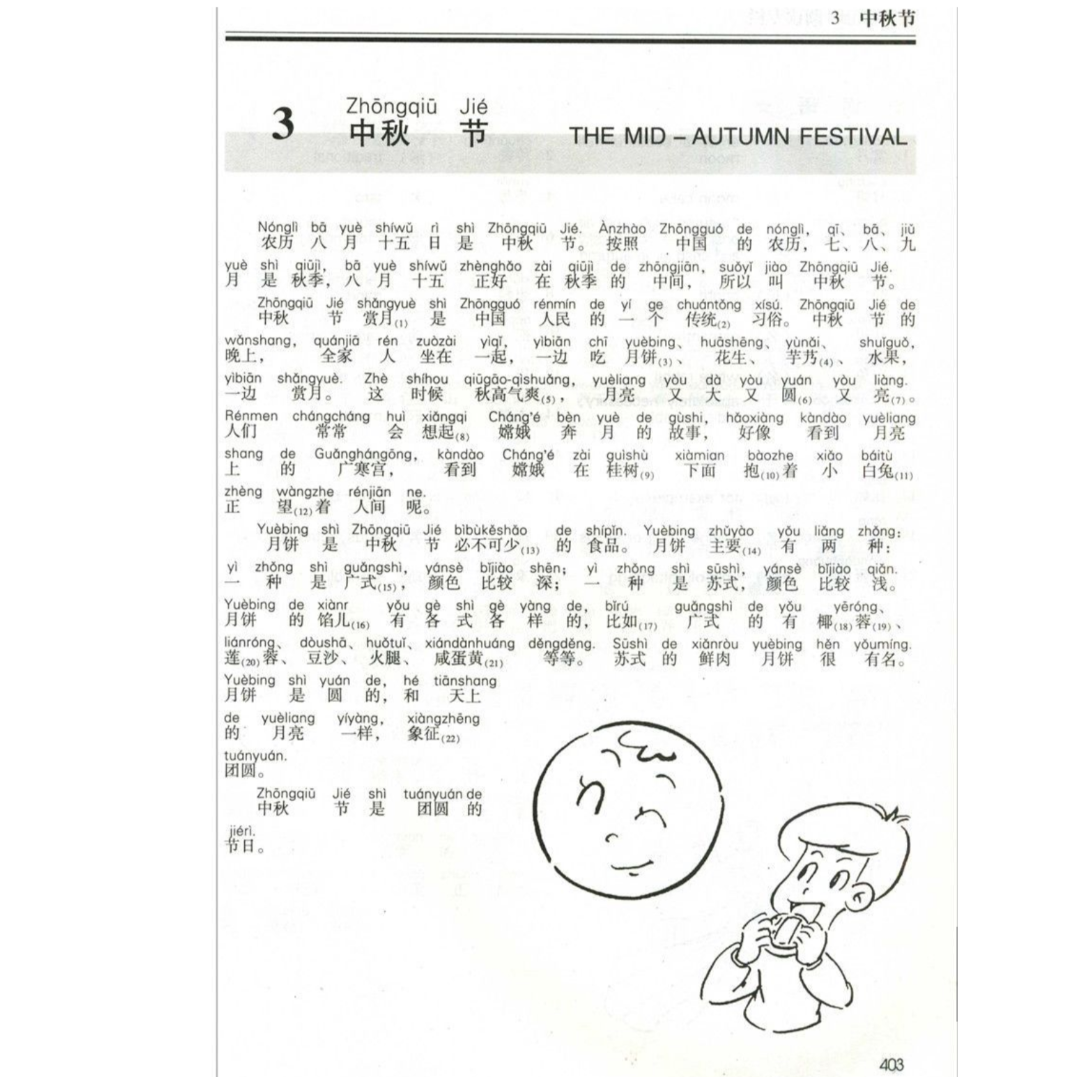 3 中秋节
Zhōngqiū Jié
3 中秋 节 THE MID – AUTUMN FESTIVAL
Nónglì bā yuè shíwǔ rì shì Zhōngqiū Jié. Ànzhào Zhōngguó de nónglì, qī、bā、jiǔ
农历 八 月 十五 日 是 中秋 节。 按照 中国 的 农历, 七、八、九
yuè shì qiūjì, bā yuè shíwǔ zhènghǎo zài qiūjì de zhōngjiān, suǒyǐ jiào Zhōngqiū Jié.
月 是 秋季, 八 月 十五 正好 在 秋季 的 中间, 所以 叫 中秋 节。
Zhōngqiū Jié shǎngyuè shì Zhōngguó rénmín de yí ge chuántǒng xísú. Zhōngqiū Jié de
中秋 节 赏月(1) 是 中国 人民 的 一 个 传统(2) 习俗。 中秋 节 的
wǎnshang, quánjiā rén zuòzài yìqǐ, yìbiān chī yuèbǐng、huāshēng、yùnǎi、 shuǐguǒ,
晚上, 全家 人 坐在 一起, 一边 吃 月饼(3)、 花生、 芋艿(4)、 水果,
yìbiān shǎngyuè. Zhè shíhou qiūgāo-qìshuǎng, yuèliang yòu dà yòu yuán yòu liàng.
一边 赏月。 这 时候 秋高气爽(5), 月亮 又 大 又 圆(6) 又 亮(7)。
Rénmen chángcháng huì xiǎngqi Cháng'é bèn yuè de gùshi, hǎoxiàng kàndào yuèliang
人们 常常 会 想起(8) 嫦娥 奔 月 的 故事, 好像 看到 月亮
shang de Guǎnghángōng, kàndào Cháng'é zài guìshù xiàmian bàozhe xiǎo báitù
上 的 广寒宫, 看到 嫦娥 在 桂树(9) 下面 抱(10)着 小 白兔(11)
zhèng wàngzhe rénjiān ne.
正 望(12)着 人间 呢。
Yuèbing shì Zhōngqiū Jié bìbùkěshǎo de shípǐn. Yuèbing zhǔyào yǒu liǎng zhǒng:
月饼 是 中秋 节 必不可少(13) 的 食品。 月饼 主要(14) 有 两 种:
yì zhǒng shì guǎngshì, yánsè bǐjiào shēn; yì zhǒng shì sūshì, yánsè bǐjiào qiǎn.
一 种 是 广式(15), 颜色 比较 深; 一 种 是 苏式, 颜色 比较 浅。
Yuèbing de xiànr yǒu gè shì gè yàng de, bǐrú guǎngshì de yǒu yēróng、
月饼 的 馅儿(16) 有 各 式 各 样 的, 比如(17) 广式 的 有 椰(18)蓉(19)、
liánróng、dòushā、huǒtuǐ、xiándànhuáng děngděng. Sūshì de xiānròu yuèbing hěn yǒumíng.
莲(20)蓉、 豆沙、 火腿、 咸蛋黄(21) 等等。 苏式 的 鲜肉 月饼 很 有名。
Yuèbing shì yuán de, hé tiānshang
月饼 是 圆 的, 和 天上
de yuèliang yíyàng, xiàngzhēng
的 月亮 一样, 象征(22)
tuányuán.
团圆。
Zhōngqiū Jié shì tuányuán de
中秋 节 是 团圆 的
jiérì.
节日。
403